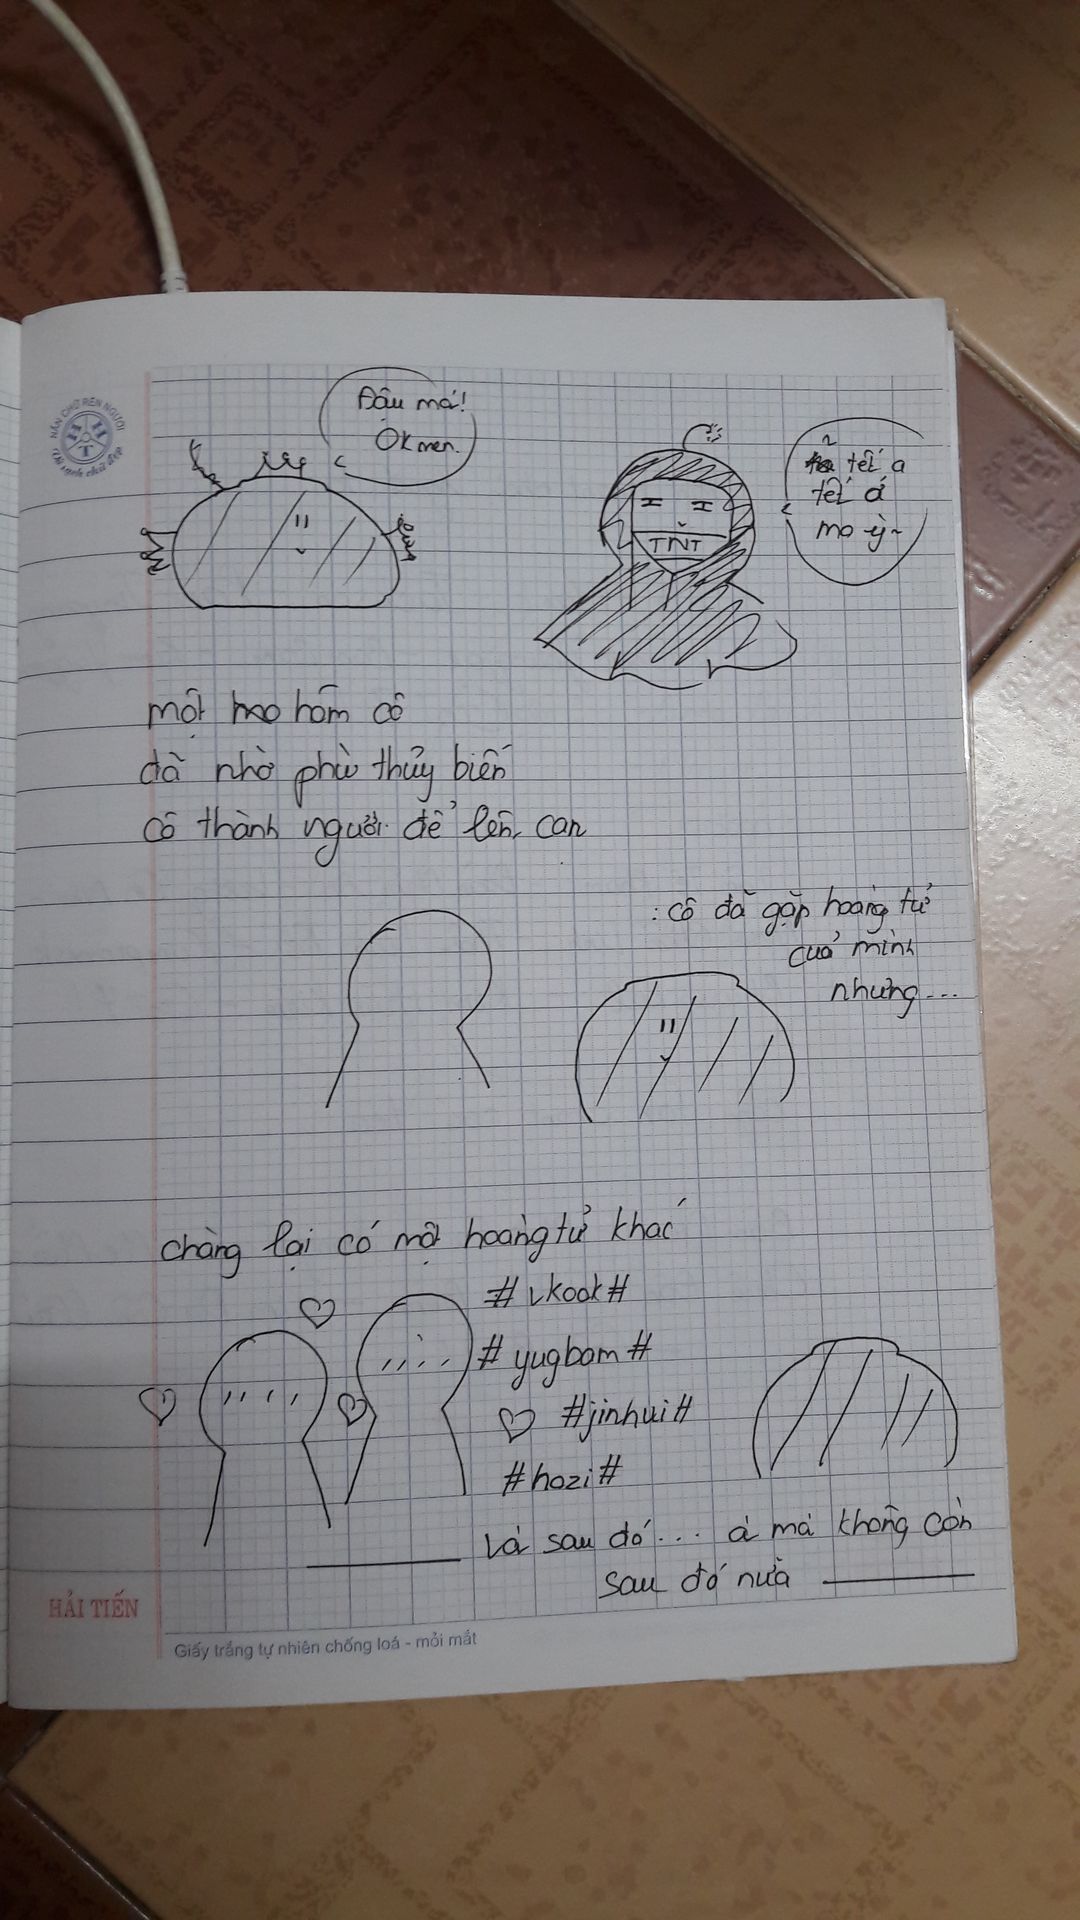 NẮN CHỮ RÈN NGƯỜI
HT
Vở sạch chữ đẹp
Đâu má!
Ok men.
tết a
tết á
ma ỳ~
TNT
một hôm cô
đã nhờ phù thủy biến
cô thành người để lên cạn
: cô đã gặp hoàng tử
của mình
nhưng...
chàng lại có một hoàng tử khác
# vkook #
# yugbam #
#jinhui#
#hozi#
Và sau đó... à mà không còn
sau đó nữa
HẢI TIẾN
Giấy trắng tự nhiên chống loá - mỏi mắt